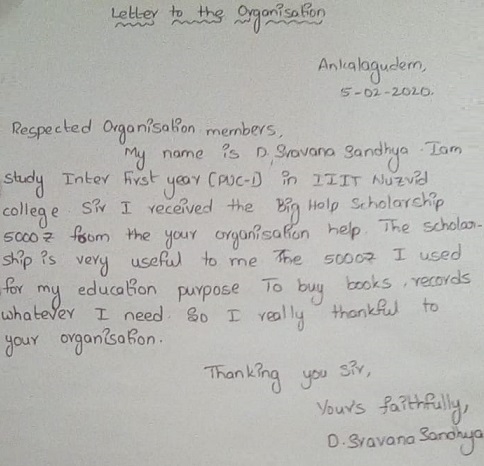 Letter to the Organisation
Ankalagudem,
5-02-2020.
Respected Organisation members,
My name is D. Sravana Sandhya. I am
study Inter First year (PUC-1) in IIIT Nuzvid
college. Sir I received the Big Help Scholarship
5000 z from the your organisation help. The scholar-
ship is very useful to me The 5000z I used
for my education purpose To buy books, records
whatever I need. So I really thankful to
your organisation.
Thanking you sir,
Your's faithfully,
D. Sravana Sandhya